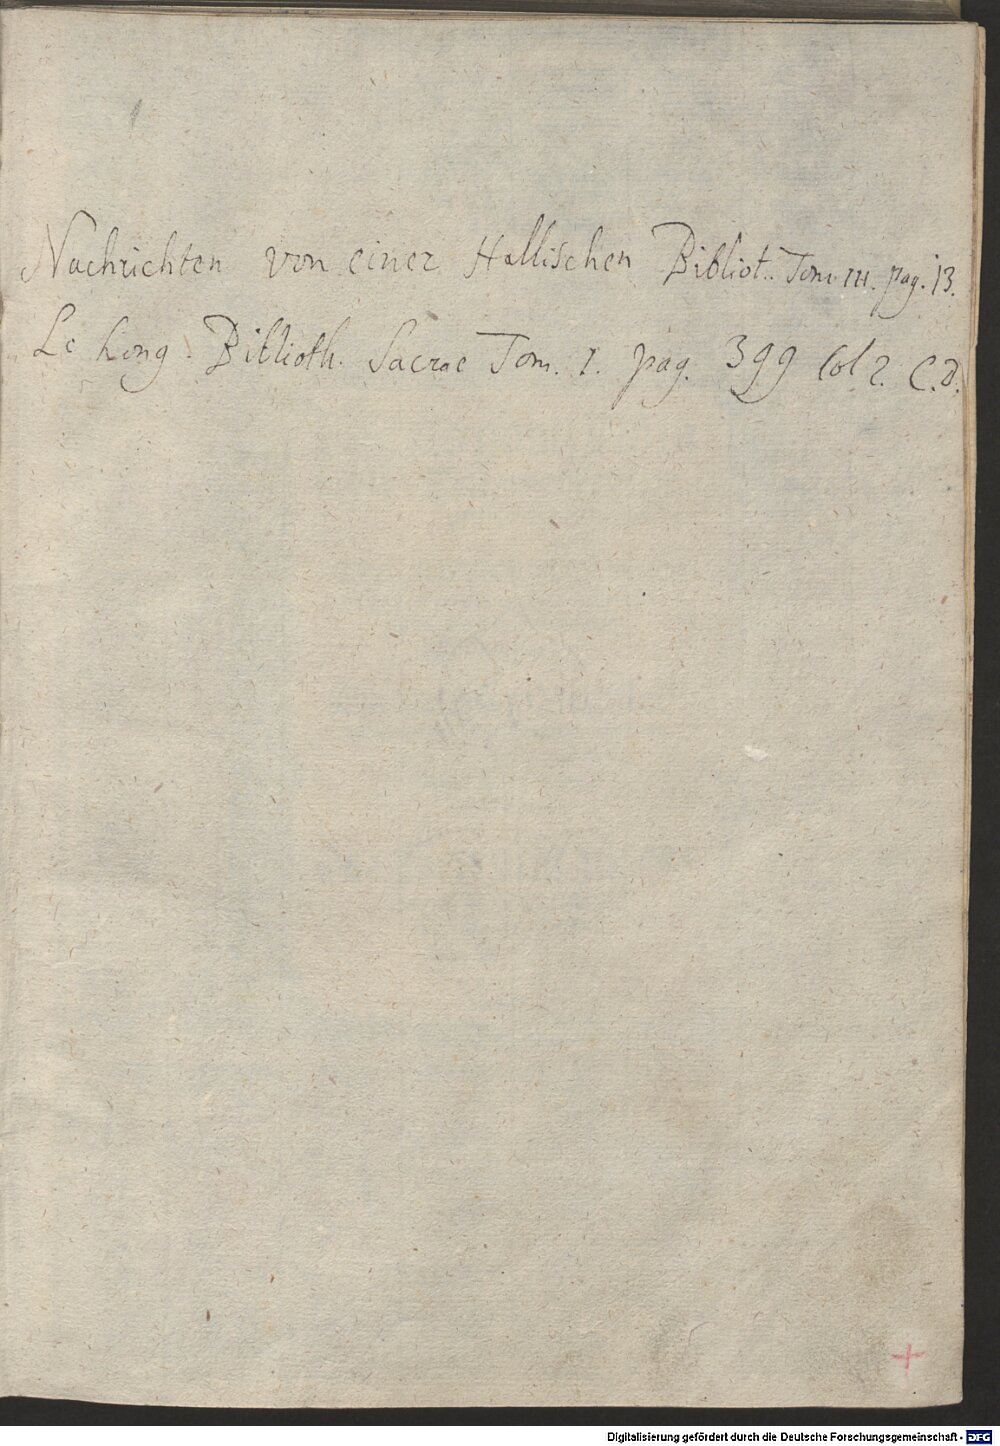 Nachrichten von einer Hallischen Bibliot. Tom. III. pag. 13.
Le Long. Biblioth. Sacrae Tom. I. pag. 399 Col 2. C.D.
Digitalisierung gefördert durch die Deutsche Forschungsgemeinschaft - DFG